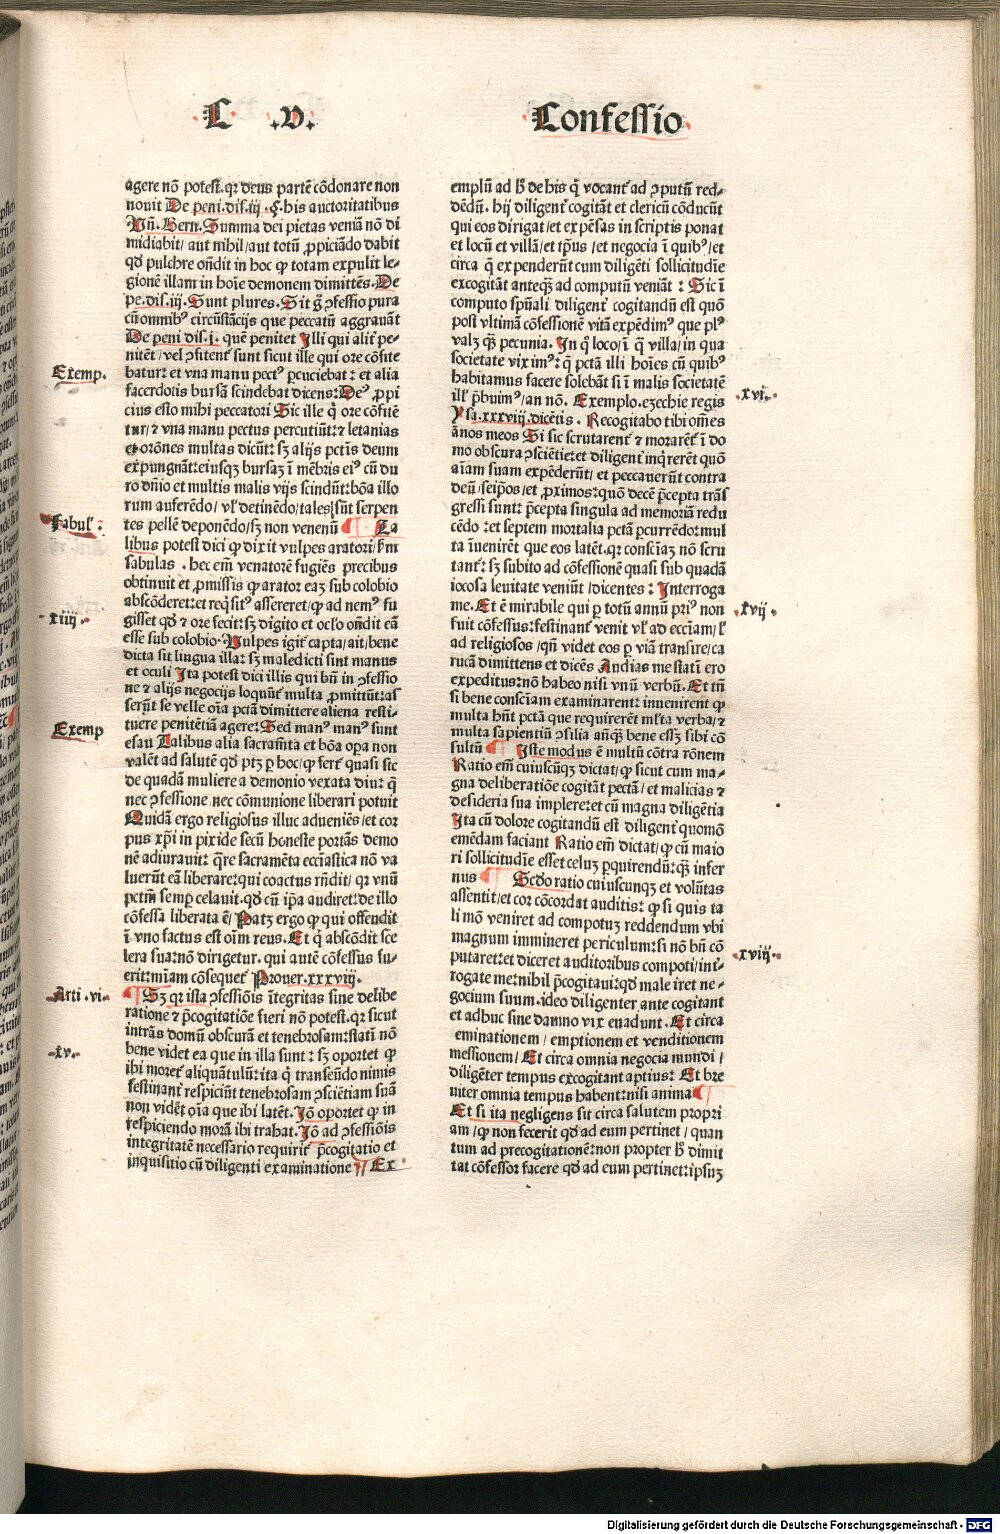 C .V. Confessio
agere nō potest. qꝛ deus partē cōdonare non
nouit De peni. dis. iij. §. his auctoritatibus
Vn̄. Bern. Summa dei pietas veniā nō di
midiabit/ aut nihil/ aut totū ꝓpiciādo dabit
qd̓ pulchre on̄dit in hoc ꝙ totam expulit le⸗
gionē illam in hoīe demonem dimittēs. De
pe. dis. iij. Sunt plures. Sit gͦ ꝯfessio pura
cū omnibꝰ circūstācijs que peccatū aggrauāt
De peni dis. j. quē penitet Illi qui alit̓ pe⸗
nitēt/ vel ꝯfitent̓ sunt sicut ille qui ore cōfite
batur: et vna manu pectꝰ ꝑcuciebat: et alia
sacerdotis bursā scindebat dicens: Deꝰ ꝓpi
cius esto mihi peccatori Sic ille q̓ ore cōfitē
tur/ ⁊ vna manu pectus percutiūt: ⁊ letanias
et orōnes multas dicūt: sꝫ alijs pctīs deum
expungnāt: eiusqꝫ bursaꝫ ī mēbris eiꝰ cū du
ro dn̄io et multis malis vijs scindūt: bōa illo
rum auferēdo/ vl̓ detinēdo/ tales sūt serpen
tes pellē deponēdo/ sꝫ non venenū ¶ Ta
libus potest dici ꝙ dixit vulpes aratori/ s̓m
fabulas . hec em̄ venatorē fugiēs precibus
obtinuit et ꝓmissis ꝙ arator eaꝫ sub colobio
abscōderet: et reqͥsitꝰ assereret/ ꝙ ad nemꝰ fu
gisset qd̓ ⁊ ore fecit: sꝫ digito et ocl̓o on̄dit eā
esse sub colobio. Vulpes igit̓ capta/ ait/ bene
dicta sit lingua illa: sꝫ maledicti sint manus
et oculi Ita potest dici illis qui bn̄ in ꝯfessio
ne ⁊ alijs negocijs loquūt̓ multa ꝓmittūt: as
serūt se velle oīa pctā dimittere aliena resti⸗
tuere penitētiā agere: Sed manꝰ manꝰ sunt
esau Talibus alia sacramēta et bōa oꝑa non
valēt ad salutē qd̓ ptꝫ ꝑ hoc/ ꝙ fert̓ quasi sic
de quadā muliere a demonio vexata diu: q̄
nec ꝯfessione nec cōmunione liberari potuit
Quidā ergo religiosus illuc adueniēs/ et cor
pus xp̄i in pixide secū honeste portās demo
nē adiurauit: q̄re sacramēta ecclīastica nō va
luerūt eā liberare: qui coactus rn̄dit/ qꝛ vnū
pctm̄ semꝑ celauit. qd̓ cū ip̄a audiret: de illo
cōfessa liberata ē/ Patꝫ ergo ꝙ qui offendit
ī vno factus est oīm reus. Et q̓ abscōdit sce
lera sua: nō dirigetur. qui autē cōfessus fu⸗
erit: mīam cōsequet̓ Prouer. xxxviij.
¶ Sꝫ qꝛ ista ꝯfessiōis ītegritas sine delibe
ratione ⁊ p̄cogitatiōe fieri nō potest. qꝛ sicut
intrās domū obscurā et tenebrosam: statī nō
bene videt ea que in illa sunt: sꝫ oportet ꝙ
ibi moret̓ aliquātulū: ita q̓ transeūdo nimis
festinant̓ respiciūt tenebrosam ꝯsciētiam suā
non vidēt oīa que ibi latēt. Iō oportet ꝙ in
respiciendo morā ibi trahat. Iō ad ꝯfessiōis
integritatē necessario requirit̓ p̄cogitatio et
inquisitio cū diligenti examinatione ¶ Ex
Exemp.
Fabul̓:
xiiij
Exemp
Arti .vi.
.xv.
emplū ad h̓ de his q̓ vocant̓ ad ꝯputū red⸗
dēdū. hij diligent̓ cogitāt et clericū cōducūt
qui eos dirigat/ et expēsas in scriptis ponat
et locū et villā/ et tp̄us/ et negocia ī quibꝰ/ et
circa q̄ expenderūt cum diligēti sollicitudīe
excogitāt anteqꝫ ad computū veniāt: Sic ī
computo spūali diligent̓ cogitandū est quō
post vltimā cōfessionē vitā expēdimꝰ que plꝰ
valꝫ qꝫ pecunia. In q̓ loco/ ī q̓ villa/ in qua
societate viximꝰ: q̄ pctā illi hoīes cū quibꝰ
habitamus facere solebāt si ī malis societatē
ill̓ p̄buimꝰ/ an nō. Exemplo. ezechie regis
Ysa. xxxviij. dicētis. Recogitabo tibi om̄es
ānos meos Si sic scrutarent̓ ⁊ morarēt̓ ī do
mo obscura ꝯsciētie: et diligent̓ inqͥrerēt quō
aīam suam expēderūt/ et peccauerūt contra
deū/ seip̄os/ et ꝓximos: quō decē p̄cepta trās
gressi sunt: p̄cepta singula ad memoriā redu
cēdo: et septem mortalia pctā ꝑcurrēdo: mul
ta īuenirēt que eos latēt. qꝛ consciāꝫ nō scru
tant̓: sꝫ subito ad cōfessionē quasi sub quadā
iocosa leuitate veniūt/ dicentes: Interroga
me. Et ē mirabile qui ꝑ totū annū priꝰ non
fuit cōfessus: festinant̓ venit vl̓ ad eccīam/ l̓
ad religiosos/ qn̄ videt eos ꝑ viā transire/ ca
rucā dimittens et dicēs Audias me statī ero
expeditus: nō habeo nisi vnū verbū. Et tn̄
si bene conscīam examinarent: inuenirent ꝙ
multa hn̄t pctā que requirerēt ml̓ta verba/ ⁊
multa sapientiū ꝯsilia anqꝫ bene essꝫ sibi cō
sultū ¶ Iste modus ē multū cōtra rōnem
Ratio em̄ cuiuscūqꝫ dictat/ ꝙ sicut cum ma⸗
gna deliberatiōe cogitāt pectā/ et malicias ⁊
desideria sua implere: et cū magna diligētia
Ita cū dolore cogitandū est diligent̓ quomō
emēdam faciant Ratio em̄ dictat/ ꝙ cū maio
ri sollicitudīe esset celuꝫ ꝑquirendū: qꝫ infer
nus ¶ Scd̓o ratio cuiuscunqꝫ et volūtas
assentit/ et cor cōcordat auditis: ꝙ si quis ta
li mō veniret ad compotuꝫ reddendum vbi
magnum immineret periculum: si nō hn̄ cō
putaret: et diceret auditoribus compoti/ int̓⸗
rogate me: nihil p̄cogitaui: qd̓ male iret ne⸗
gocium suum. ideo diligenter ante cogitant
et adhuc sine damno vix euadunt. Et circa
seminationem/ emptionem et venditionem
messionem/ Et circa omnia negocia mundi/
diligēter tempus excogitant aptius: Et bre
uiter omnia tempus habent: nisi anima ¶
Et si ita negligens sit circa salutem propri
am/ ꝙ non fecerit qd̓ ad eum pertinet/ quan
tum ad precogitationē: non propter h̓ dimit
tat cōfessor facere qd̓ ad eum pertinet: ipsuꝫ
.xvi.
xvij
.xviij.
Digitalisierung gefördert durch die Deutsche Forschungsgemeinschaft - DFG